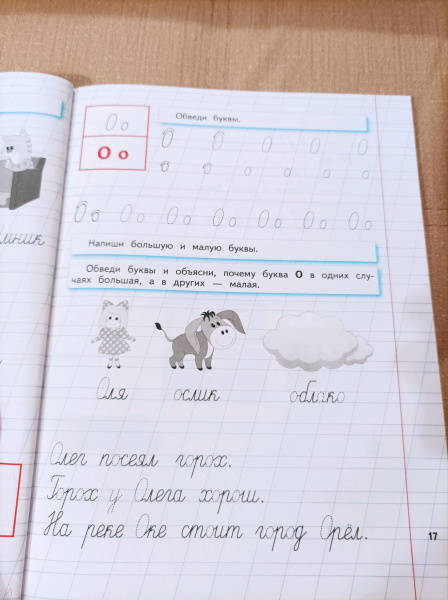 О о
О о
Обведи буквы.
О О О О О
о о о о о о
О о О о О о О о О о О о О о
Напиши большую и малую буквы.
Обведи буквы и объясни, почему буква О в одних слу-
чаях большая, а в других — малая.
Оля ослик облако
Олег посеял горох.
Горох у Олега хорош.
На реке Оке стоит город Орёл.
17